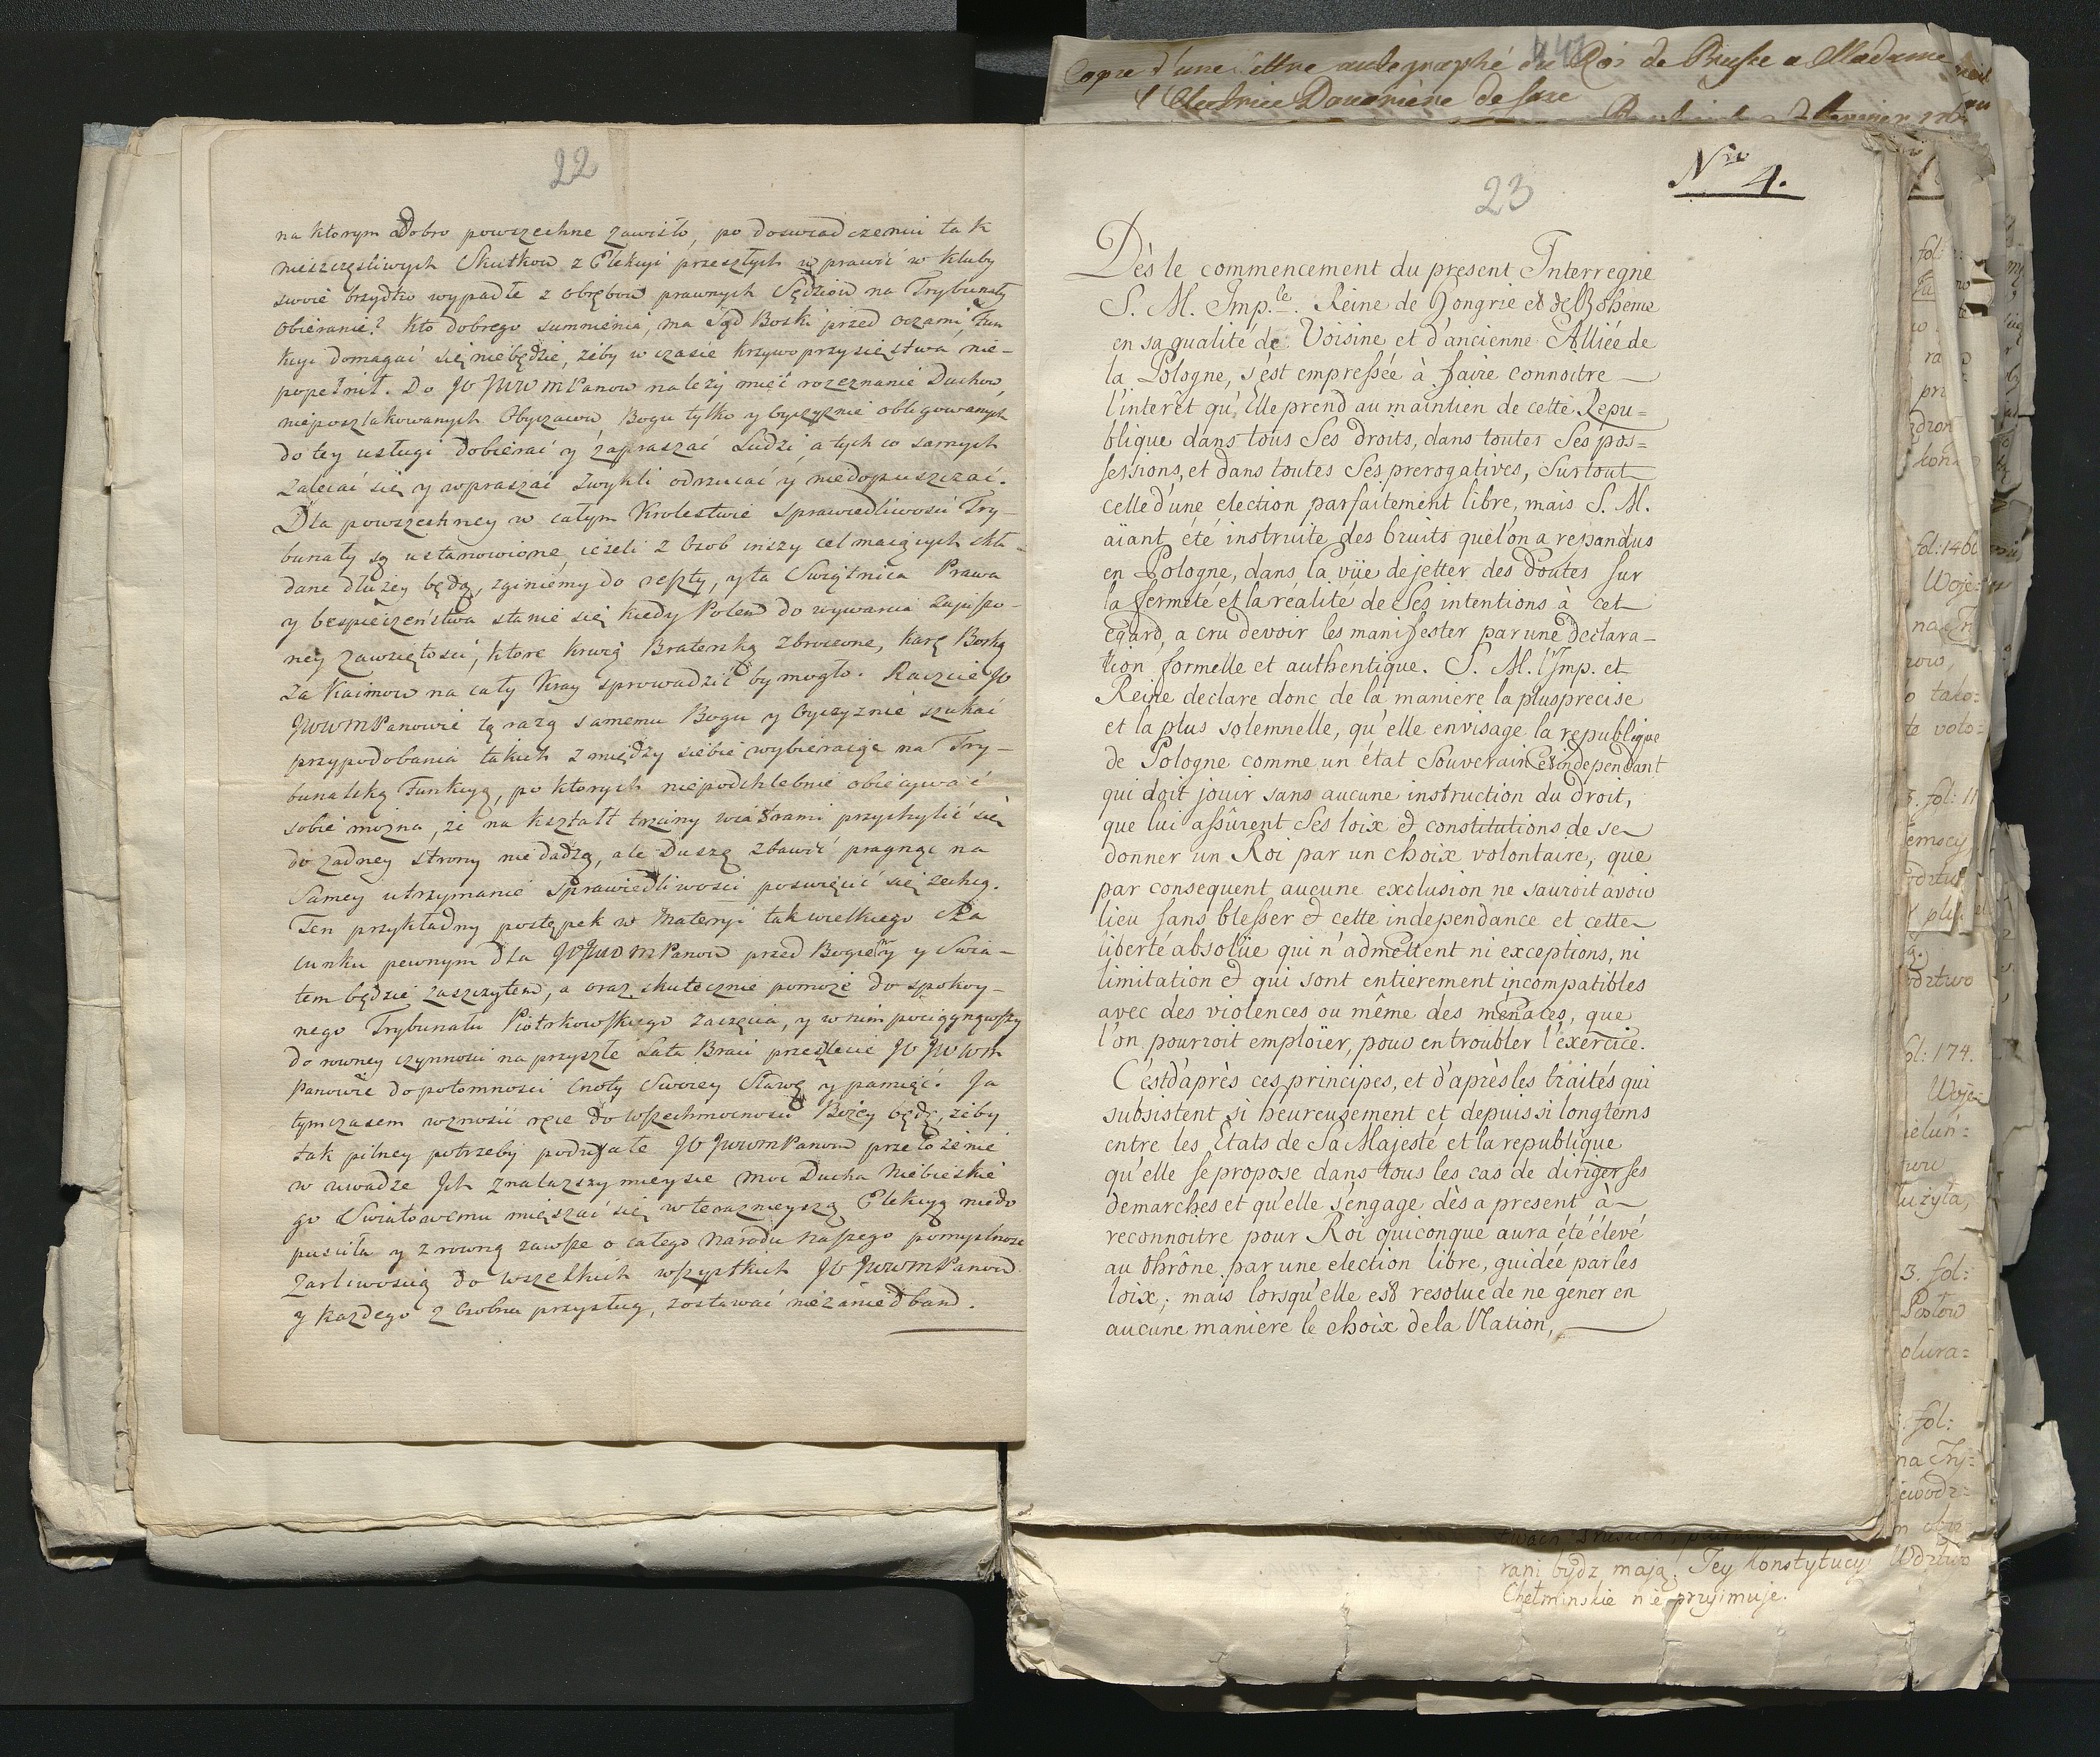 22
na ktorym Dobro powszechne zawisło, po doswiadczeniu tak
nieszczęsliwych Skutkow z Elekcyi przeszłych wprawić w kluby
swoie brzydko wypadłe z obrębow prawnych Sędziow na Trybunały
obieranie? Kto dobrego sumnienia, ma Sąd Boski przed oczami, Fun
kcyi domagać się niebędzie, żeby w czasie krzywoprzysięstwa nie-
popełnił. Do JW JWWMPanow należy mieć rozeznanie Duchow,
nieposzlakowanych Obyczaiow, Bogu tylko y Oyczyznie obligowanych
do tey usługi dobierać y zapraszać Ludzi, a tych co samych
zalecać się y wpraszać zwykli odrzucać y niedopuszczać.
Dla powszechney w całym Krolestwie Sprawiedliwosci Try-
bunały są ustanowione, ieżeli z Osob inszy cel maiących skła-
dane dłużey będą, zginiemy do reszty, y ta Swiątnica Prawa
y bespieczeństwa stanie się kiedy Polem do wywarcia
ney zawziętosci, ktore krwią Braterską zbroczone, karę Boską
za Kaimow na cały Kray sprowadzić by mogło. Raczcie JW
JWWMPanowie tą razą samemu Bogu y Oyczyznie szukać
przypodobania takich z między siebie wybieraiąc na Try-
bunalską Funkcyą, po ktorych niepodchlebnie obiecywać
sobie można, że na kształt trzciny wiatrami przychylić się
do żadney strony nie dadzą, ale Duszę zbawić pragnąc na
Samey utrzymanie Sprawiedliwosci poswięcić się zechcą.
Ten przykładny postępek w Materyi tak wielkiego Sza
cunku pewnym dla JWJWWMPanow przed Bogiem y Swia-
tem będzie zaszczytem, a oraz skutecznie pomoże do spokoy-
nego Trybunału Piotrkowskiego zaczęcia, y w nim pociągnąwszy
do rowney czynnosci na przyszłe Lata Braci przeszlecie JW JWWM
Panowie do potomnosci Cnoty Swoiey Sławę y pamięć. Ja
tymczasem wznosić ręce do Wszechmocnosci Bożey będę, żeby
tak pilney potrzeby JW JWWMPanow przełożenie
w uwadze Jch znalazszy mieysce moc Ducha Niebieskie
go Swiatowemu mięszać się w terazneyszą Elekcyą niedo
pusciła y z rowną zawsze o całego Narodu naszego pomyslnosc
Zarliwoscią do wszelkich wszystkich JW JWWMPanow
y każdego z osobna przysług, zostawać niezaniedbam.
Copie d'une lettre autographé du Roi de Prusse a Madame
l'Electrice Douairiere de Saxe
Nro 4.
23
Dès le commencement du present Interregne
S. M. Imp.le Reine de Hongrie et de Bohême
en sa qualité de Voisine et d'ancienne Alliée de
la Pologne, s'est empressée à faire connoitre
l'interêt qu'Elle prend au maintien de cette Repu=
blique dans tous Ses droits, dans toutes Ses pos=
sessions, et dans toutes Ses prerogatives, surtout
celle d'une election parfaitement libre, mais S. M.
aïant été instruite des bruits quel'on a repandus
en Pologne, dans la vüe de jetter des doutes sur
la fermeté et la réalité de Ses intentions à cet
egard, a cru devoir les manifester par une declara-
tion formelle et authentique. S. M. l'Imp. et
Reine declare donc de la maniere la plus precise
et la plus solemnelle, qu'elle envisage la republique
de Pologne comme un état Souverain et independant
qui doit jouir sans aucune instruction du droit,
que lui assûrent Ses loix et constitutions de se
donner un Roi par un choix volontaire, que
par consequent aucune exclusion ne sauroit avoir
lieu sans blesser et cette independance et cette
liberté absolüe qui n'admettent ni exceptions, ni
limitation et qui sont entierement incompatibles
avec des violences ou même des ménaces, que
l'on pourroit emploïer, pour en troubler l'exercice.
C'est d'après ces principes, et d'après les traités qui
subsistent si heureusement et depuis si longtems
entre les Etats de Sa Majesté et la republique
qu'elle se propose dans tous les cas de diriger ses
demarches et qu'elle s'engage dès a present à
reconnoitre pour Roi quiconque aura été élevé
au thrône par une election libre, guidée par les
loix; mais lorsqu'elle est resolue de ne gêner en
aucune maniere le choix de la Nation,
fol:
fol: 1461
Woje:
tako:
te voto:
3. fol: 11
fol: 174.
Woje=
3. fol:
Posłow
fol:
na Try:
rani bydz mają. Tey konstytucyi Wdztwo
Chełminskie nie przyimuje.